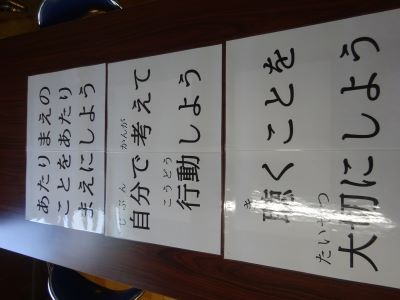 あたりまえの
ことをあたり
まえにしよう
じぶん かんが
自分で考えて
こうどう
行動しよう
き
聴くことを
たいせつ
大切にしよう